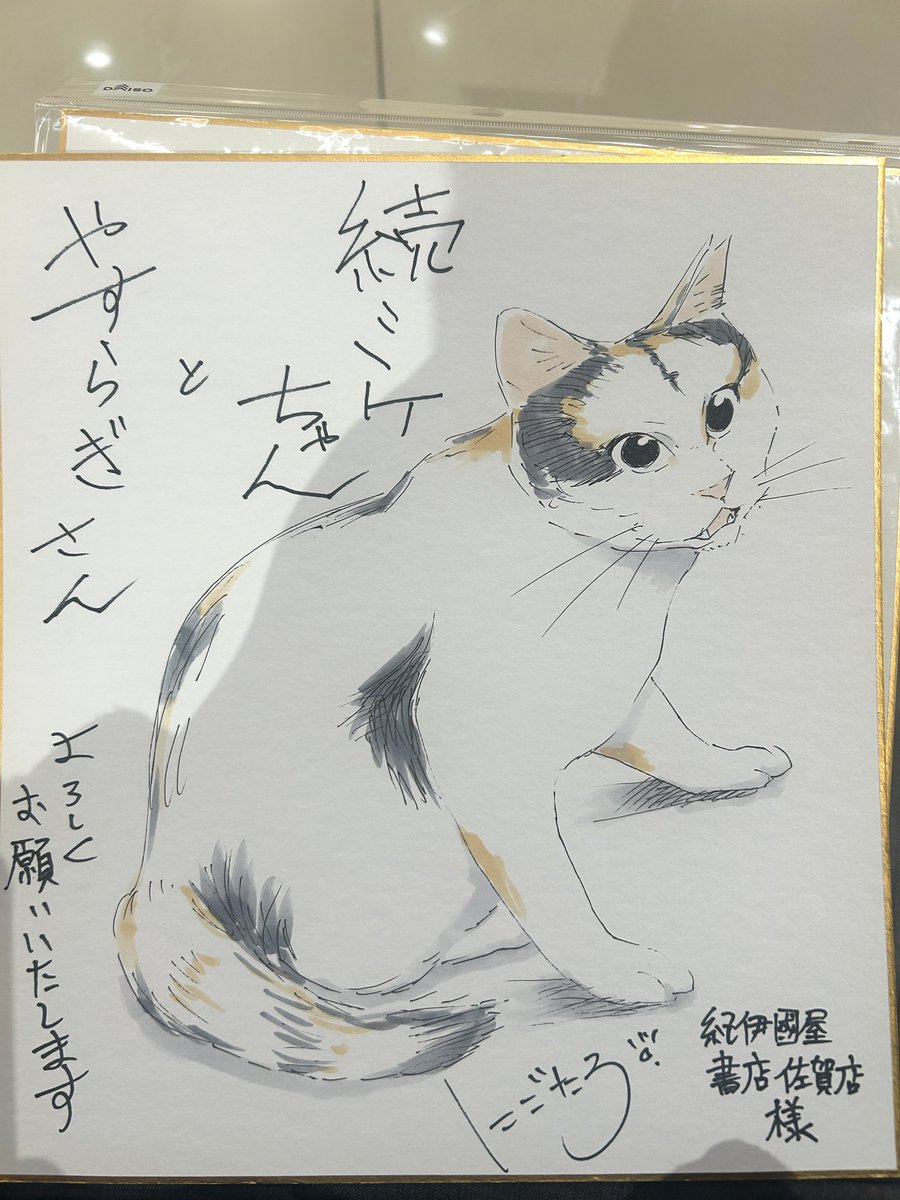 DAISO
続ミケ
ちゃん
と
やすらぎさん
よろしく
お願いいたします
にごたろ
紀伊國屋
書店佐賀店
様